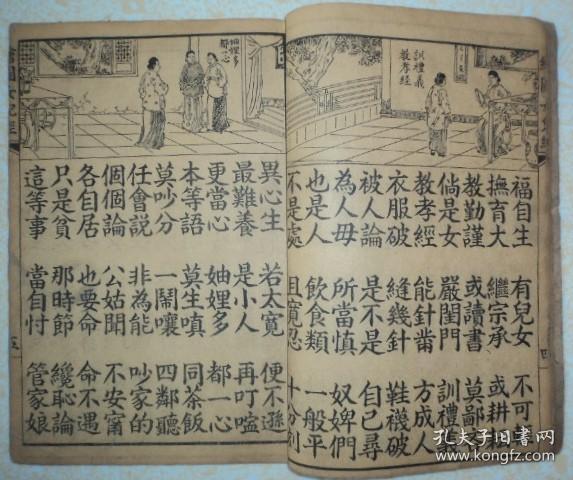 訓禮義
教孝經
福自生 有兒女 不可
撫育大 繼宗承 或耕
教勤謹 或讀書 莫鄙
倘是女 嚴閨門 訓禮義
教孝經 能針黹 方成人
衣服破 縫幾針 鞋襪破
被人論 是不是 自己尋
為人毋 所當慎 奴婢們
也是人 飲食類 一般平
不是處 且寬忍 十分刻
四
妯娌多
都一心
異心生 若太寬 便不遜
最難養 是小人 再叮嚀
更當心 妯娌多 都一心
本等語 莫生嗔 同茶飯
莫吵分 一鬧嚷 四鄰聽
任會說 非為能 吵家的
個個論 公姑聞 不安甯
各自居 也要命 命不遇
只是貧 那時節 纔恥論
這等事 當自忖 管家娘
五
孔夫子旧书网
www.kongfz.com